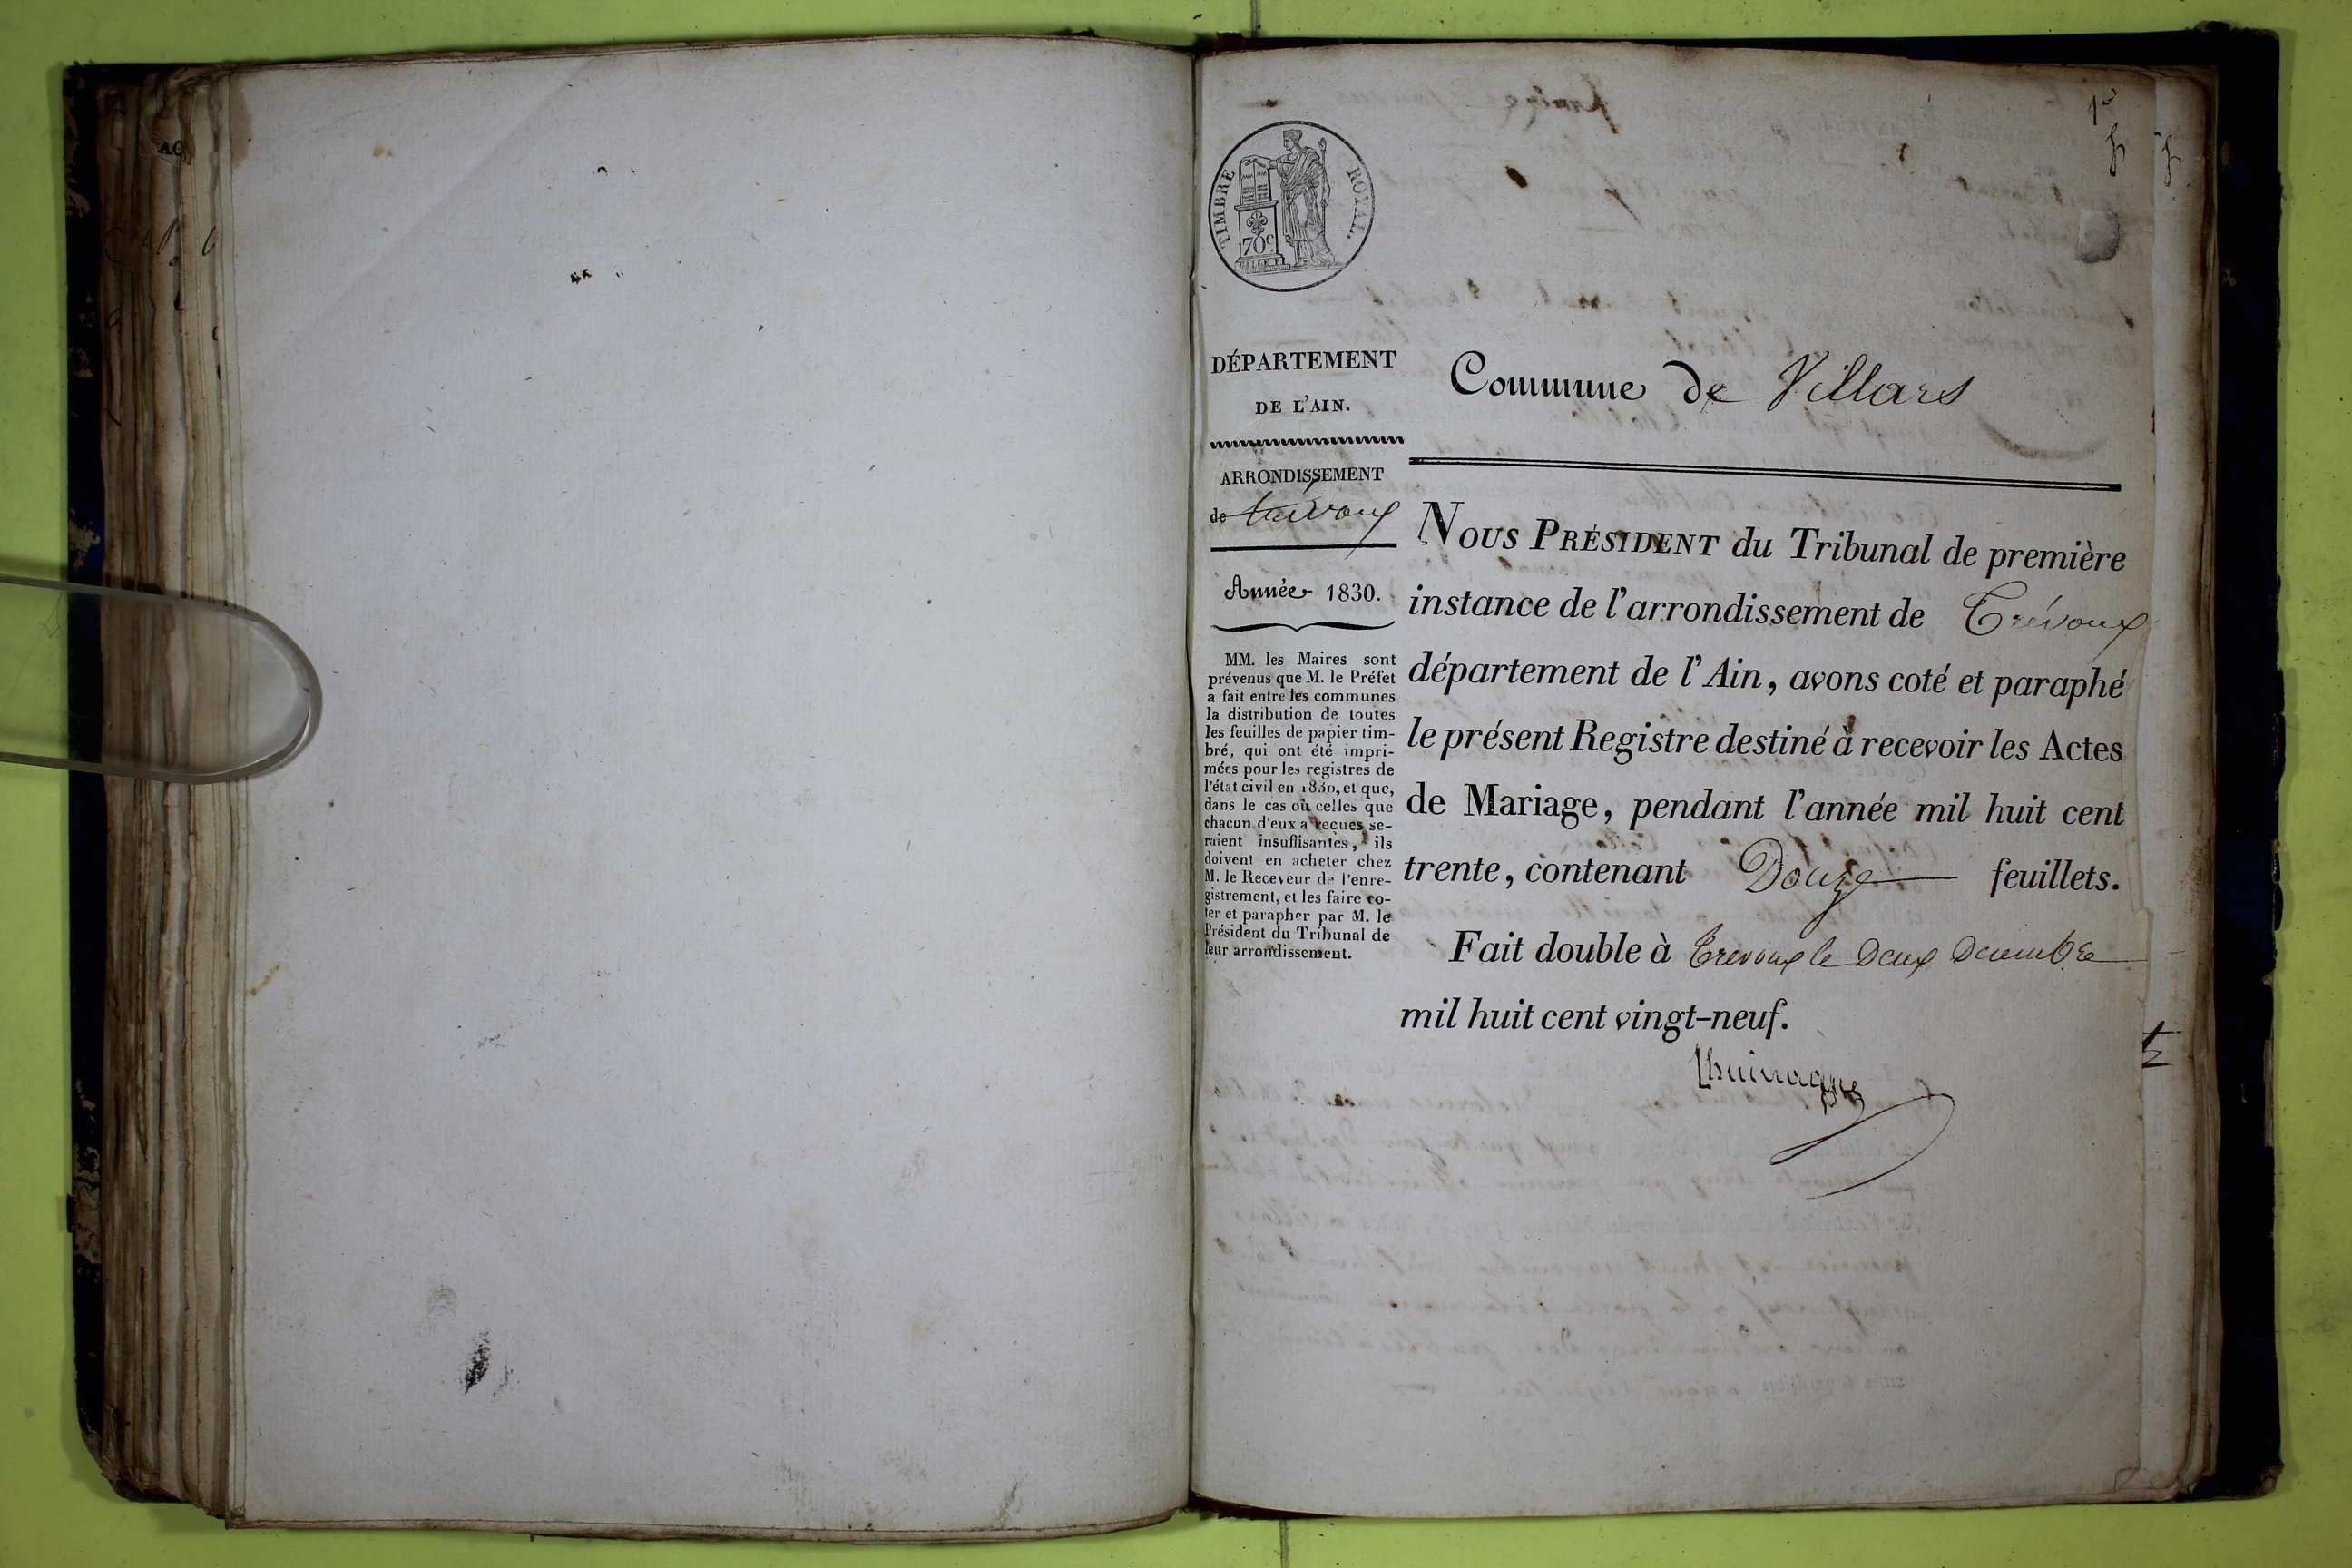 AC
1er
TIMBRE ROYAL.
70c
DÉPARTEMENT
DE L'AIN.
ARRONDISSEMENT
de trévoux
Année 1830.
MM. les Maires sont
prévenus que M. le Préfet
a fait entre les communes
la distribution de toutes
les feuilles de papier tim-
bré, qui ont été impri-
mées pour les registres de
l'état civil en 1830, et que,
dans le cas où celles que
chacun d'eux a reçues se-
raient insuffisantes, ils
doivent en acheter chez
M. le Receveur de l'enre-
gistrement, et les faire co-
ter et parapher par M. le
Président du Tribunal de
leur arrondissement.
Commune de Villars
NOUS PRÉSIDENT du Tribunal de première
instance de l'arrondissement de Trévoux
département de l'Ain, avons coté et paraphé
le présent Registre destiné à recevoir les Actes
de Mariage, pendant l'année mil huit cent
trente, contenant Douze feuillets.
Fait double à Trevoux le Deux Decembre
mil huit cent vingt-neuf.